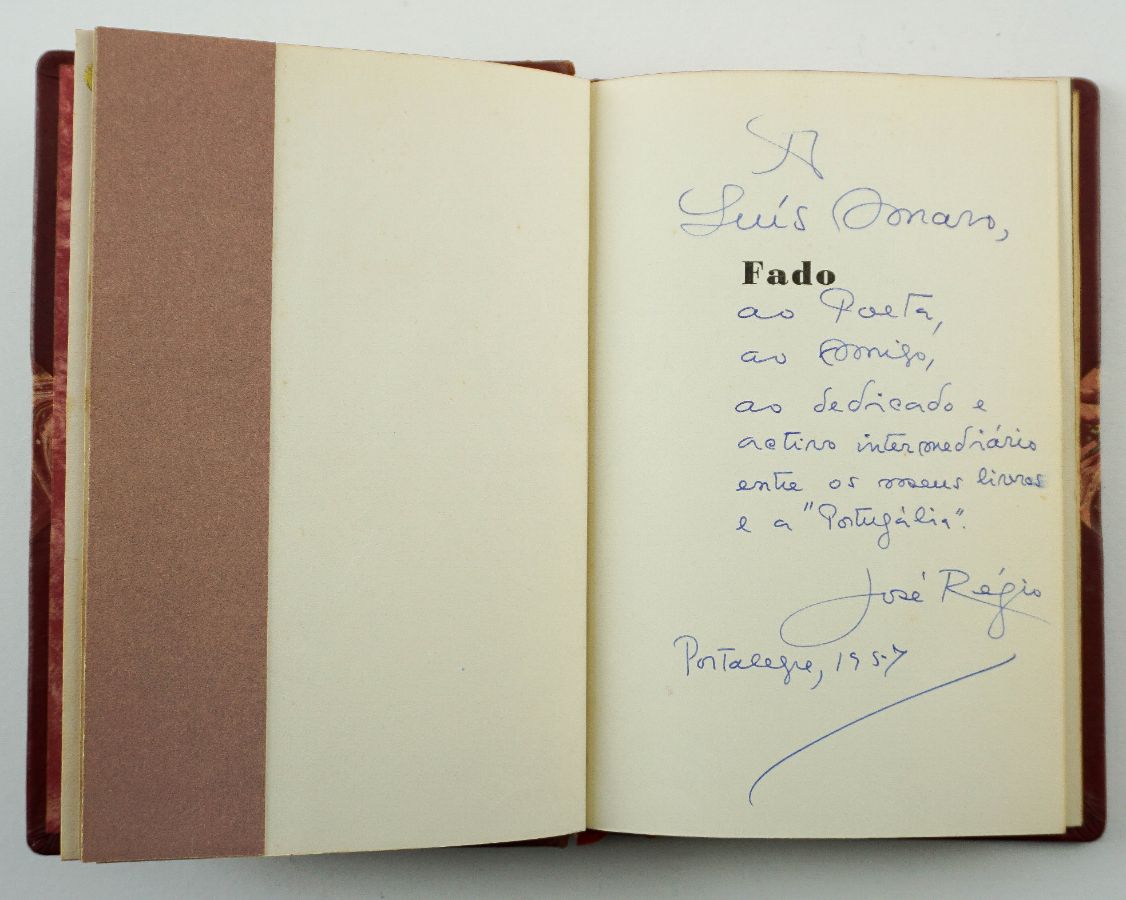 A
Luís Amaro,
Fado
ao Poeta,
ao Amigo,
ao dedicado e
activo intermediário
entre os meus livros
e a "Portugália".
José Régio
Portalegre, 1957